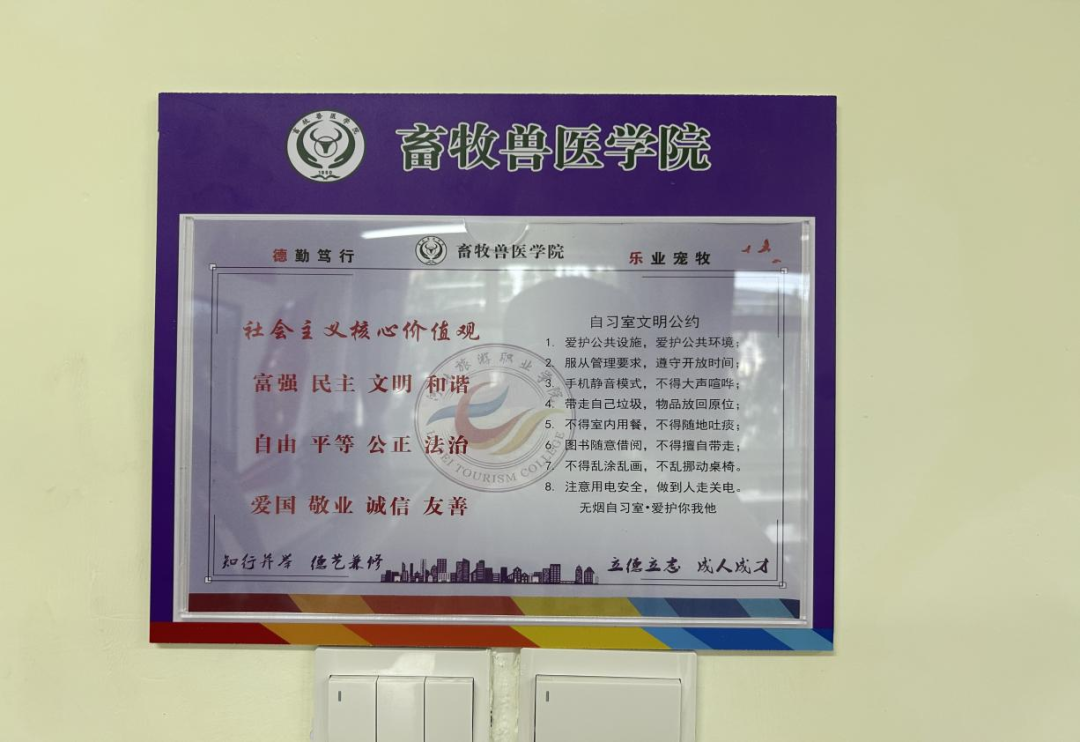 畜牧兽医学院
畜牧兽医学院
德勤笃行
畜牧兽医学院
乐业宠牧
社会主义核心价值观
富强 民主 文明 和谐
自由 平等 公正 法治
爱国 敬业 诚信 友善
自习室文明公约
1. 爱护公共设施，爱护公共环境；
2. 服从管理要求，遵守开放时间；
3. 手机静音模式，不得大声喧哗；
4. 带走自己垃圾，物品放回原位；
5. 不得室内用餐，不得随地吐痰；
6. 图书随意借阅，不得擅自带走；
7. 不得乱涂乱画，不乱挪动桌椅。
8. 注意用电安全，做到人走关电。
无烟自习室•爱护你我他
旅游职业学院
TOURISM COLLEGE
知行并举 德艺兼修
立德立志 成人成才